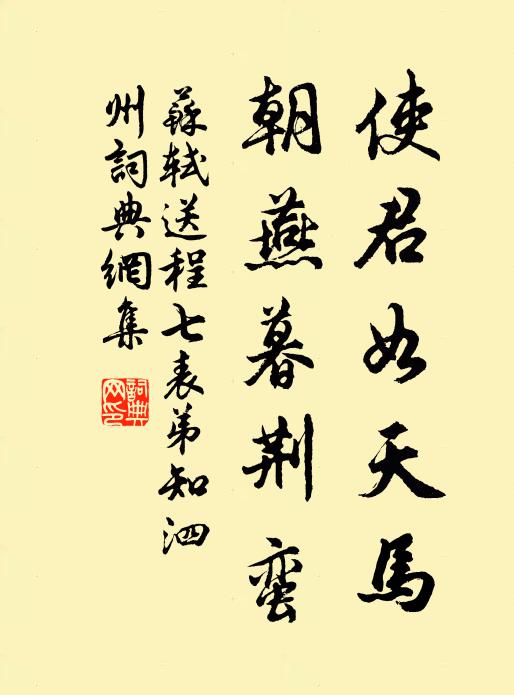 使君如天馬
朝燕暮荆蛮
蘇軾送程七表弟知泗
州詞典網集
詞典网印